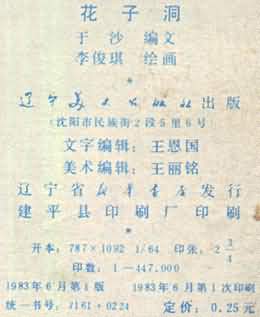 花子洞
于沙 编文
李俊琪 绘画
*
辽宁美术出版社出版
(沈阳市民族街2段5里6号)
文字编辑:王恩国
美术编辑:王丽铭
辽宁省新华书店发行
建平县印刷厂印刷
*
开本:787×1092 1/64 印张:2 3/4
印数:1—447,000
1983年6月第1版 1983年6月第1次印刷
统一书号:J161·0224 定价:0.25元